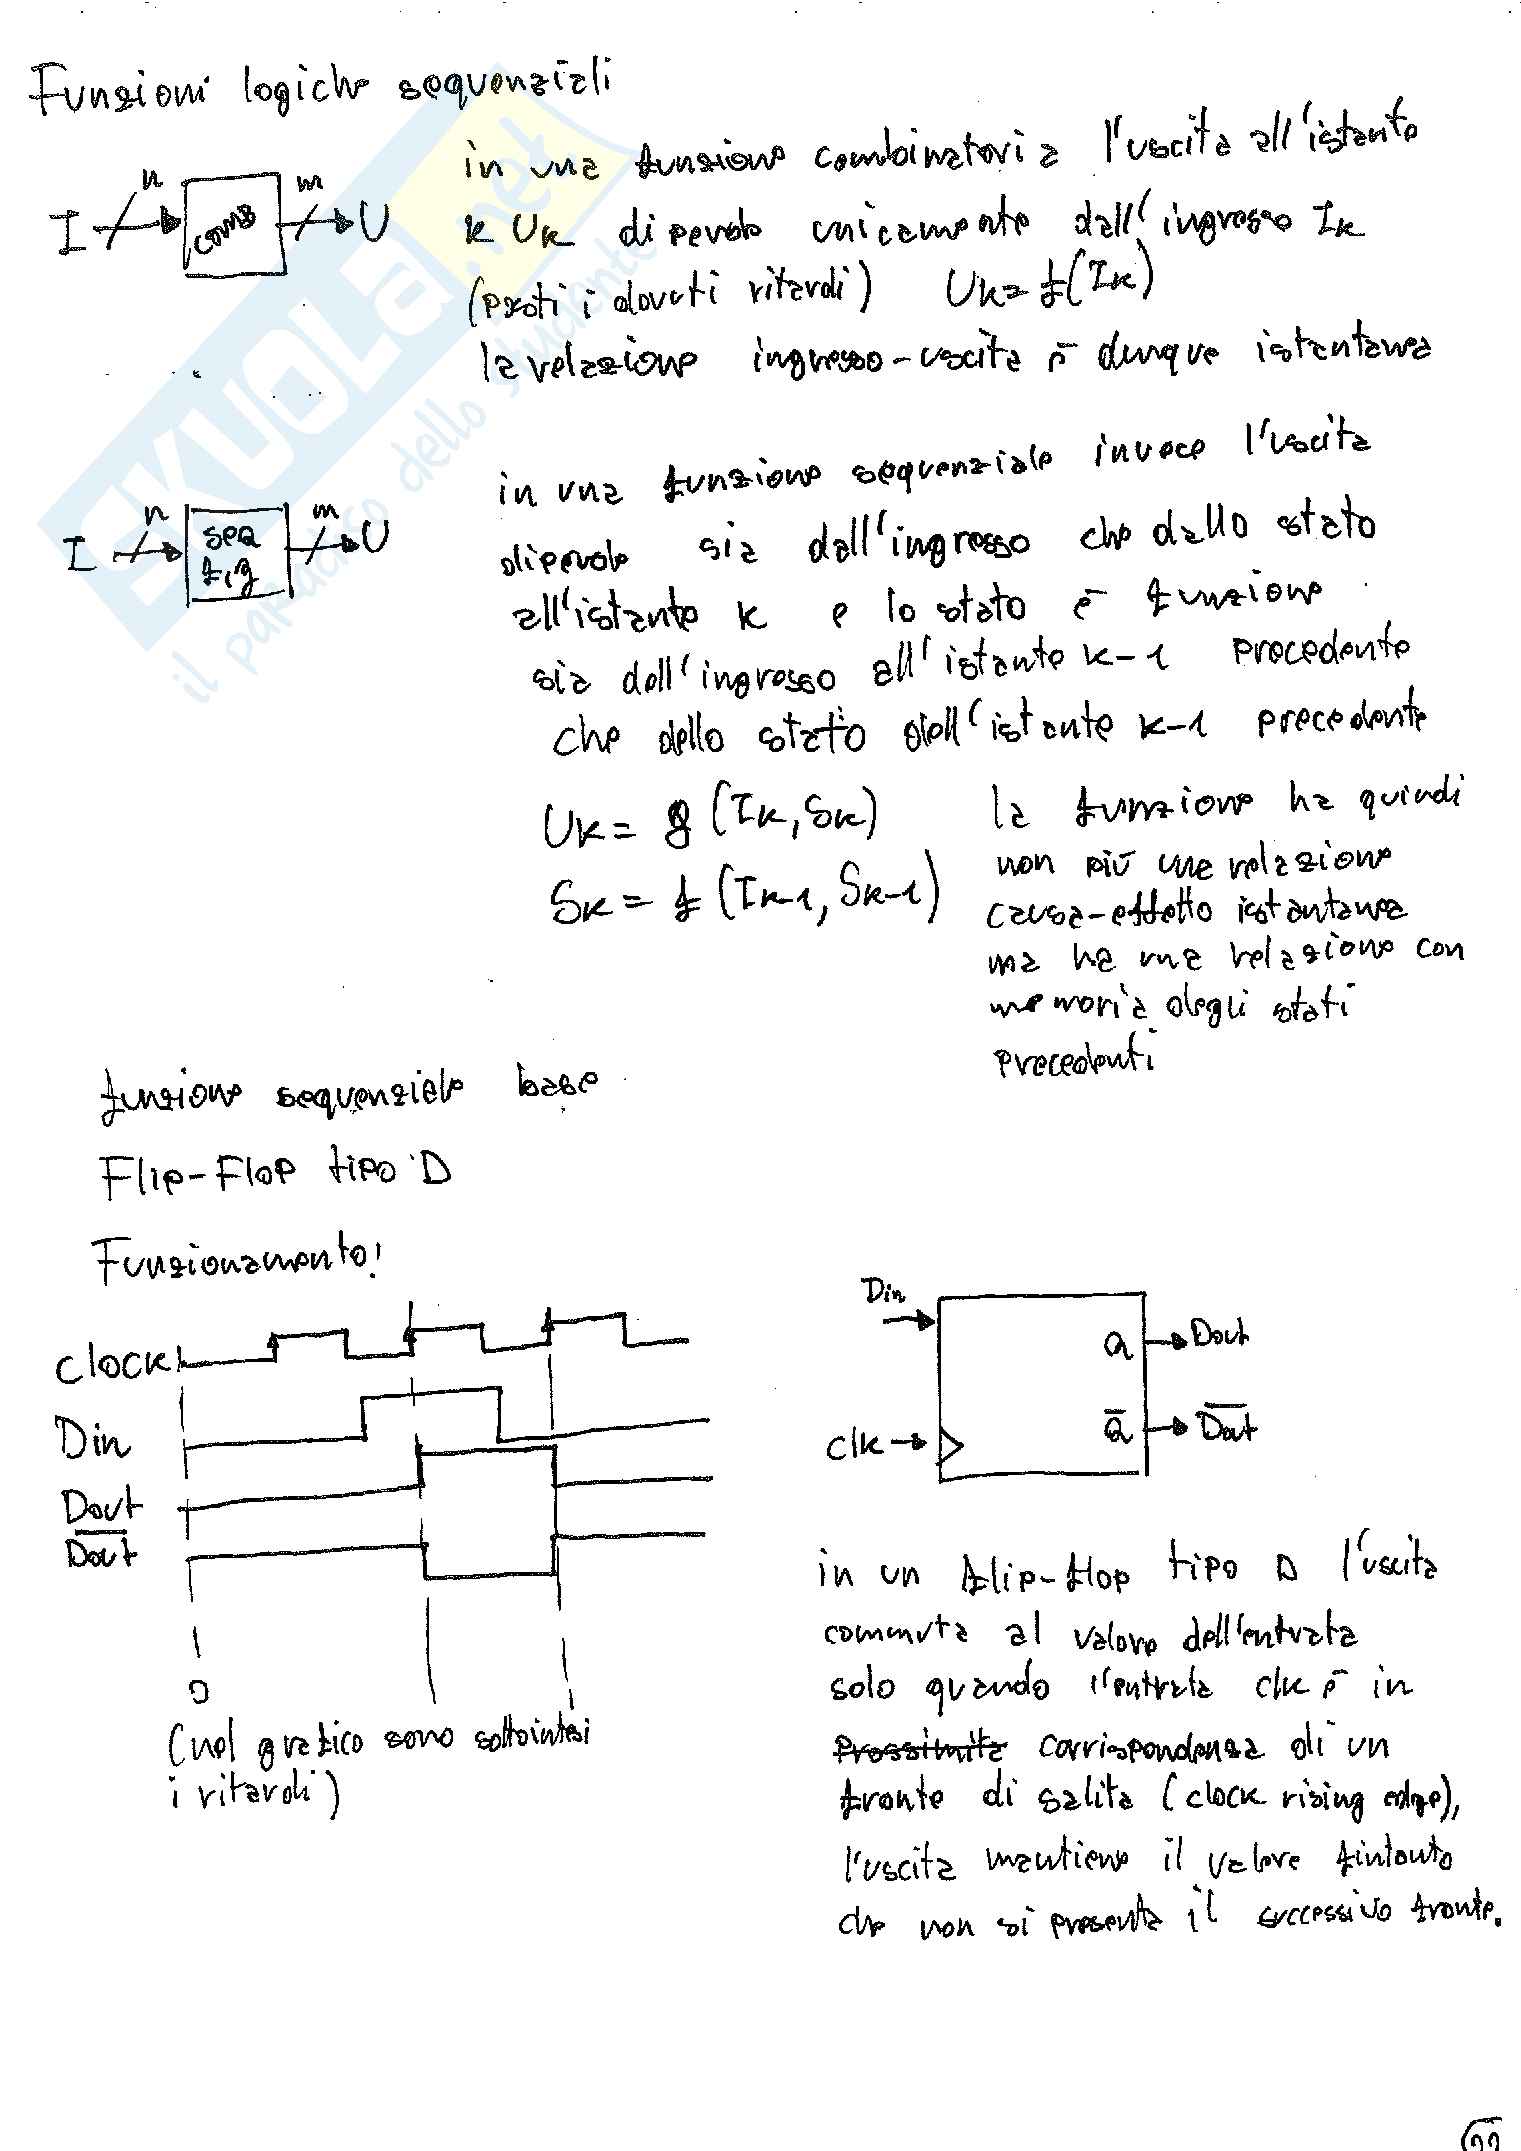 Funzioni logiche sequenziali
I n comb m U
in una funzione combinatoria l'uscita all'istante
k Uk dipende unicamente dall'ingresso Ik
(posti i dovuti ritardi) Uk= f(Ik)
la relazione ingresso-uscita è dunque istantanea
SKUOLA.net
il paradiso dello studente
I n seq f,g m U
in una funzione sequenziale invece l'uscita
dipende sia dall'ingresso che dallo stato
all'istante k e lo stato è funzione
sia dell'ingresso all'istante k-1 precedente
che dello stato dell'istante k-1 precedente
Uk= g (Ik, Sk)
Sk= f (Ik-1, Sk-1)
la funzione ha quindi
non più una relazione
causa-effetto istantanea
ma ha una relazione con
memoria degli stati
precedenti
funzione sequenziale base
Flip-Flop tipo D
Funzionamento:
clock
Din
Dout
D̅o̅u̅t̅
0
(nel grafico sono sottointesi
i ritardi)
Din
Q Dout
clk Q̅ D̅o̅u̅t̅
in un flip-flop tipo D l'uscita
commuta al valore dell'entrata
solo quando l'entrata clk è in
prossimità corrispondenza di un
fronte di salita (clock rising edge),
l'uscita mantiene il valore fintanto
che non si presenta il successivo fronte.